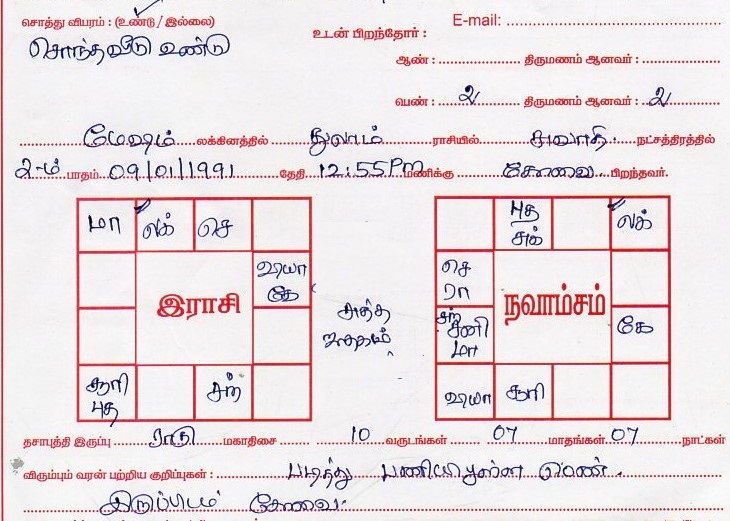 சொத்து விபரம் : (உண்டு / இல்லை) E-mail:
சொந்த வீடு உண்டு உடன் பிறந்தோர் :
ஆண் : திருமணம் ஆனவர் :
பெண் : 2 திருமணம் ஆனவர் : 2
மேஷம் லக்கினத்தில் துலாம் ராசியில் சுவாதி நட்சத்திரத்தில்
2-ம் பாதம் 09/01/1991 தேதி 12:55 PM மணிக்கு கோவை பிறந்தவர்.
மா லக் செ
வியா கே
இராசி
சூரி புத சந்
புத சுக் லக்
செ ரா
நவாம்சம்
சந் சனி மா கே
வியா சூரி
தசாபுத்தி இருப்பு ராகு மகாதிசை 10 வருடங்கள் 07 மாதங்கள் 07 நாட்கள்
விரும்பும் வரன் பற்றிய குறிப்புகள் : படித்து பணியிலுள்ள பெண்.
இருப்பிடம் கோவை.